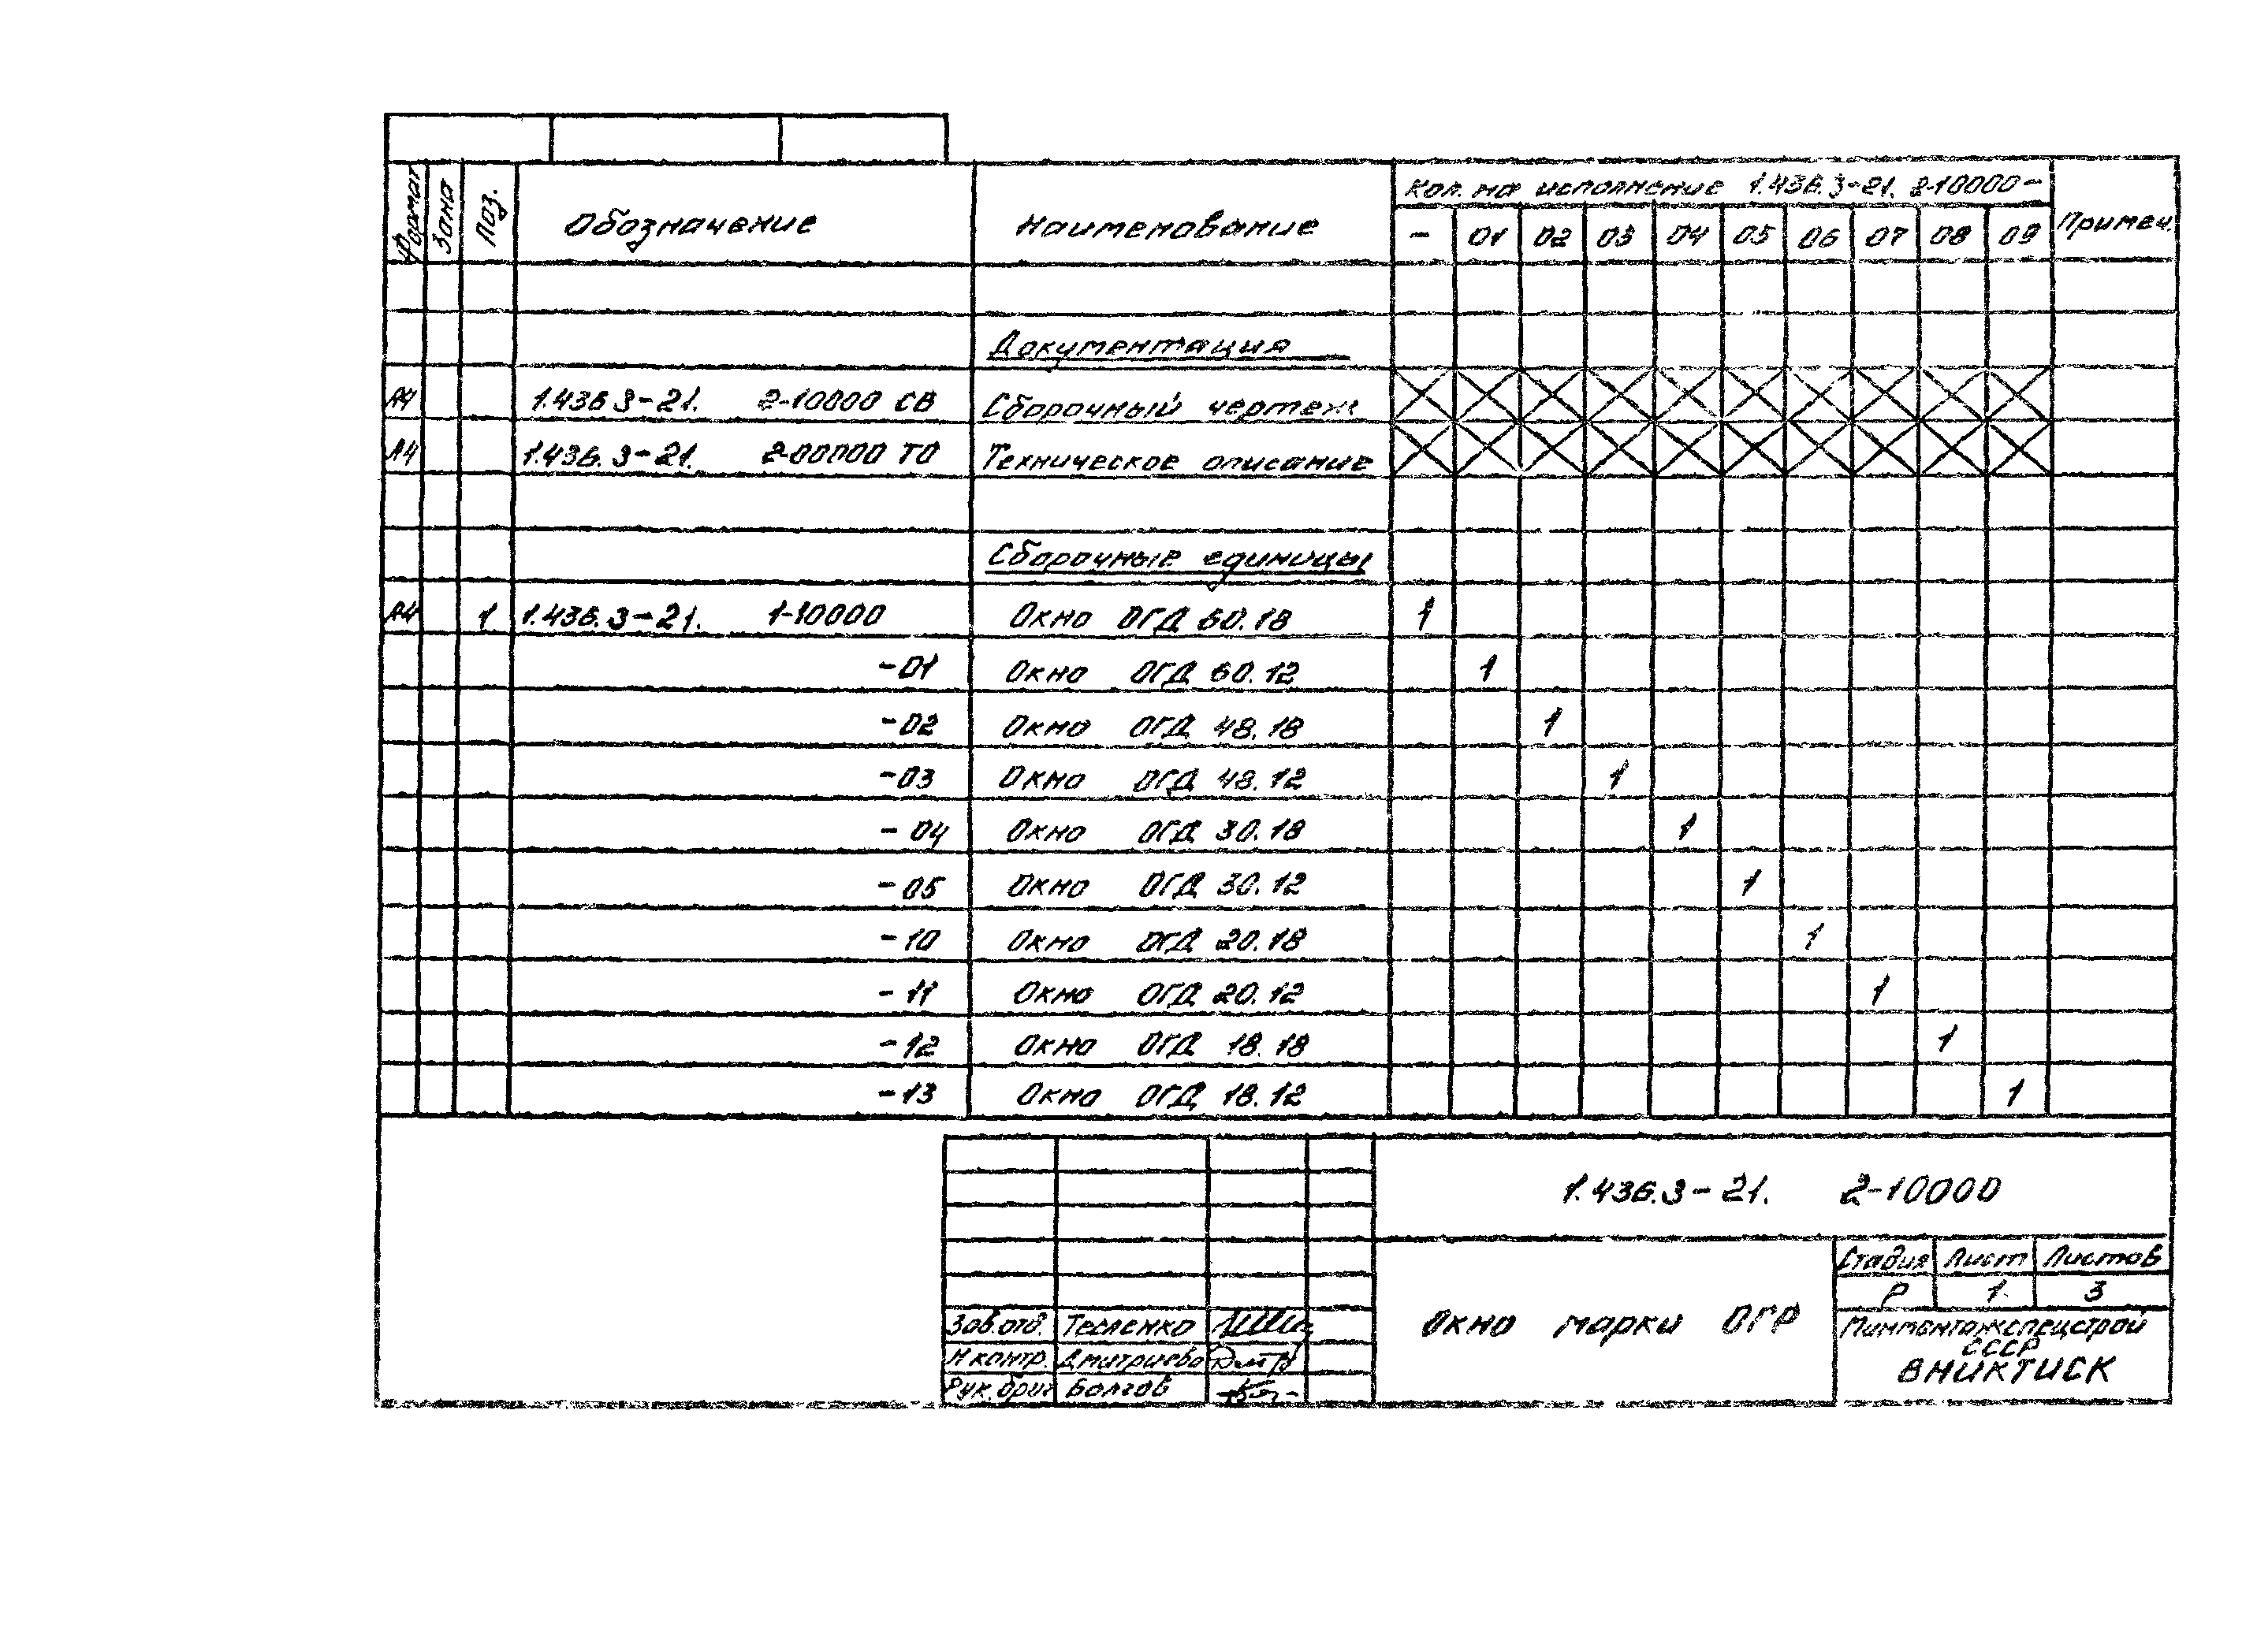 Формат Зона Поз. Обозначение Наименование Кол. на исполнение 1.436.3-21. 2-10000- Примеч.
- 01 02 03 04 05 06 07 08 09
Документация
А4 1.436.3-21. 2-10000 СБ Сборочный чертеж
А4 1.436.3-21. 2-00000 ТО Техническое описание
Сборочные единицы
А4 1 1.436.3-21. 1-10000 Окно ОГД 60.18 1
-01 Окно ОГД 60.12 1
-02 Окно ОГД 48.18 1
-03 Окно ОГД 48.12 1
-04 Окно ОГД 30.18 1
-05 Окно ОГД 30.12 1
-10 Окно ОГД 20.18 1
-11 Окно ОГД 20.12 1
-12 Окно ОГД 18.18 1
-13 Окно ОГД 18.12 1
1.436.3-21. 2-10000
Окно марки ОГР
Стадия Лист Листов
Р 1 3
Зав.отд. Тесленко
Н контр. Дмитриева
Рук.бриг Болгов
Минмонтажспецстрой
СССР
ВНИКТИСК